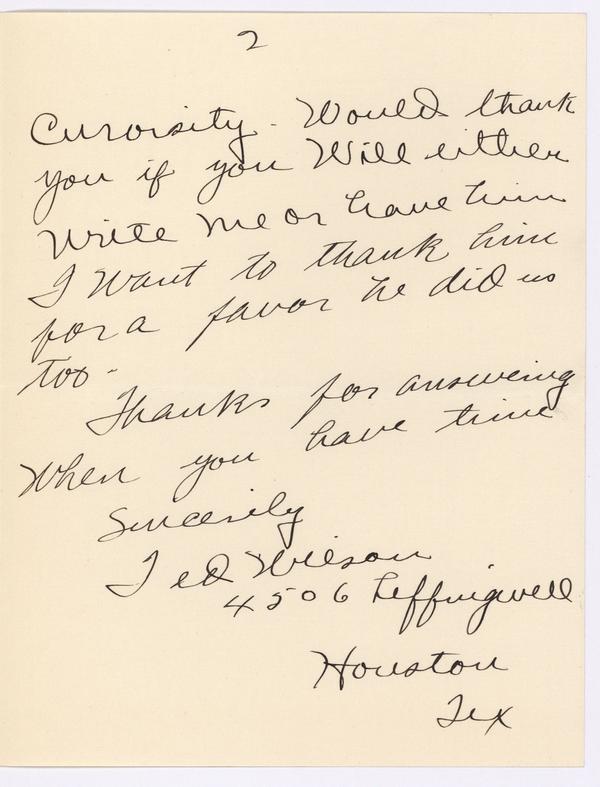 2
Curoisity. Would thank
you if you Will either
Write me or have him
I Want to thank him
for a favor he did us
too-
Thanks for answering
When you have time
Sincerily
Ted Wilson
4506 Leffingwell
Houston
Tex